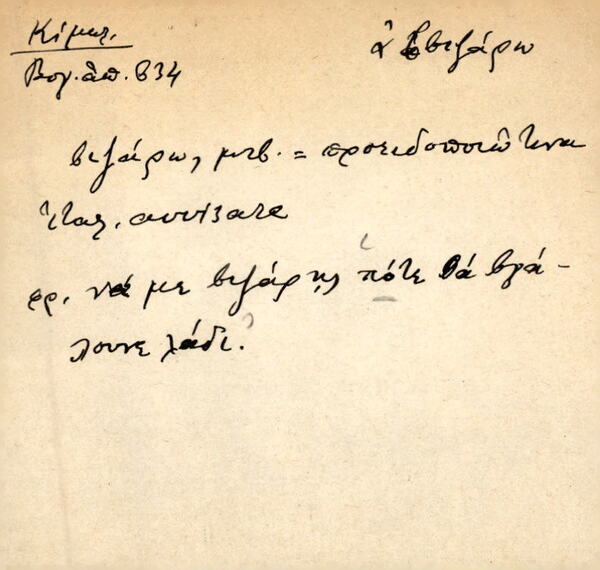 Κίμωλ.
Βογ. ἀπ. 634
βεζάρω
βεζάρω, μτβ. = προειδοποιῶ τινα
Ἰταλ. avvisare
φρ. νά με βεζάρῃς πότε θά βγά-
λουνε λάδι.